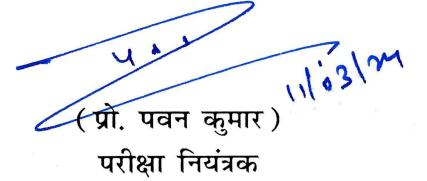 11/03/24
( प्रो. पवन कुमार )
परीक्षा नियंत्रक